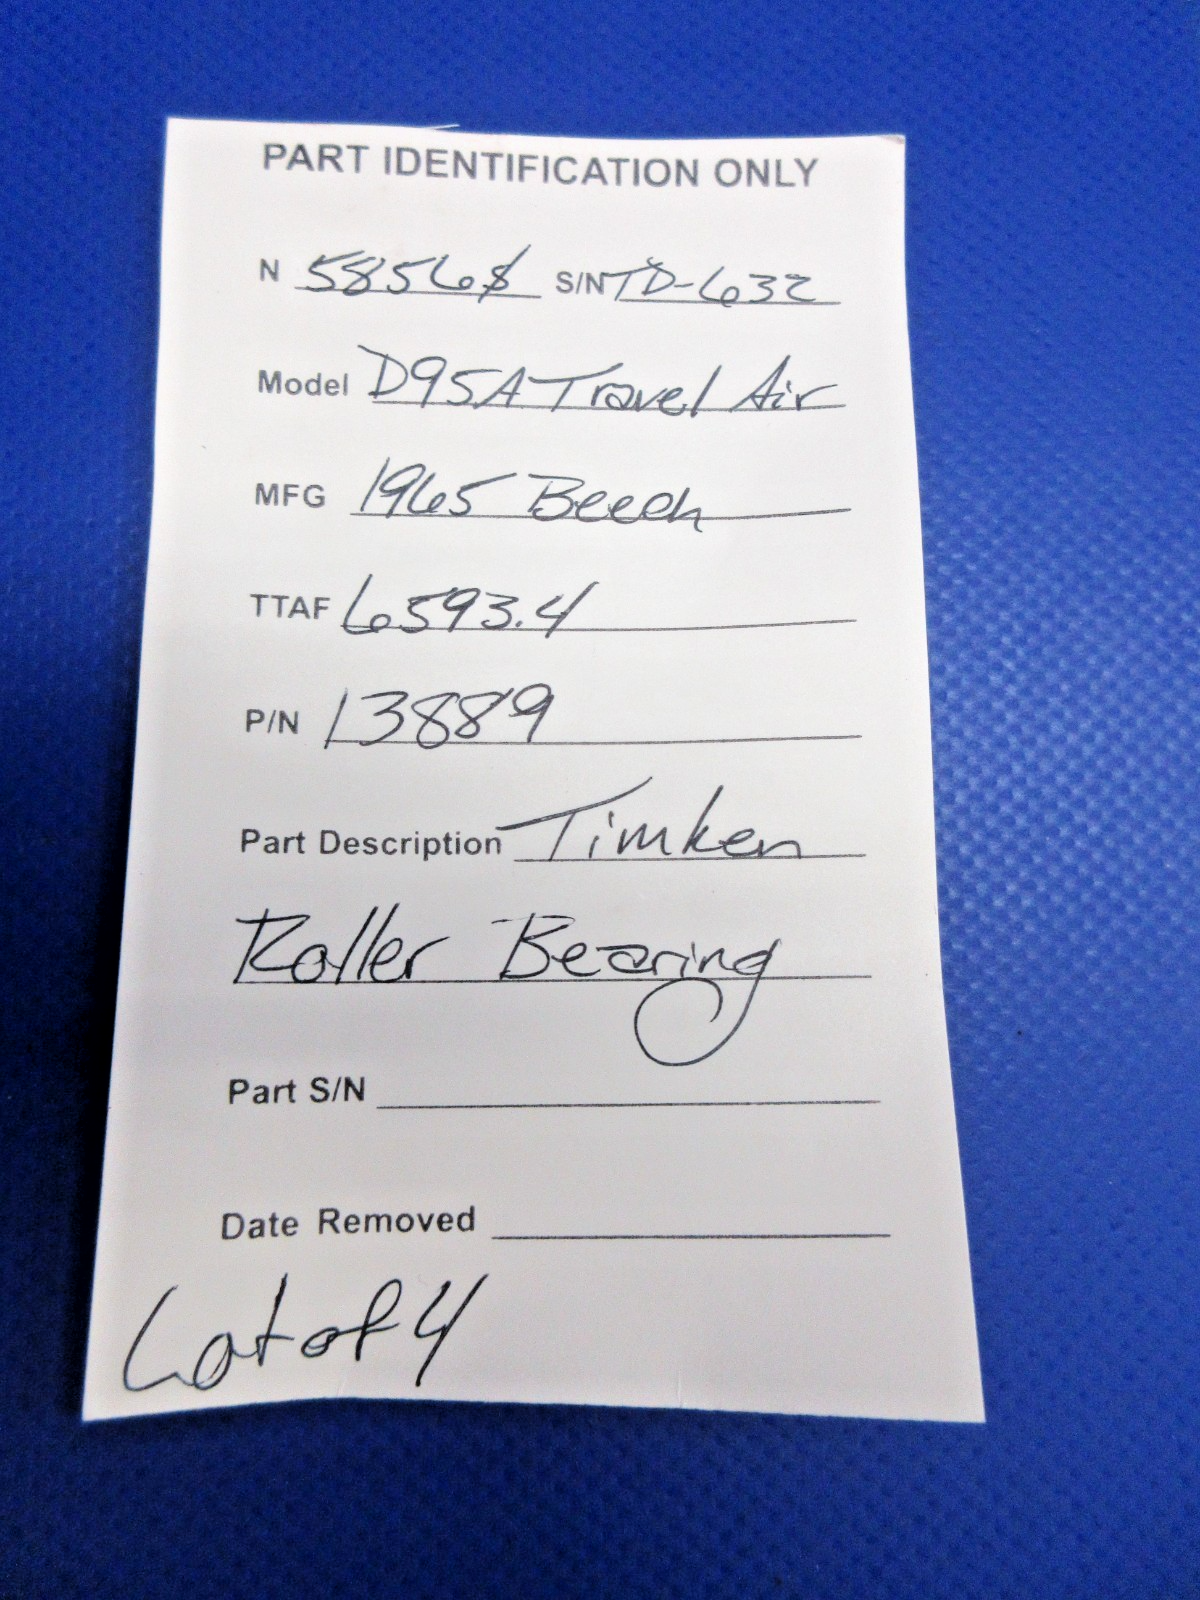 PART IDENTIFICATION ONLY
N 5856$ S/N TD-632
Model D95A Travel Air
MFG 1965 Beech
TTAF 6593.4
P/N 13889
Part Description Timken
Roller Bearing
Part S/N
Date Removed
Lot of 4